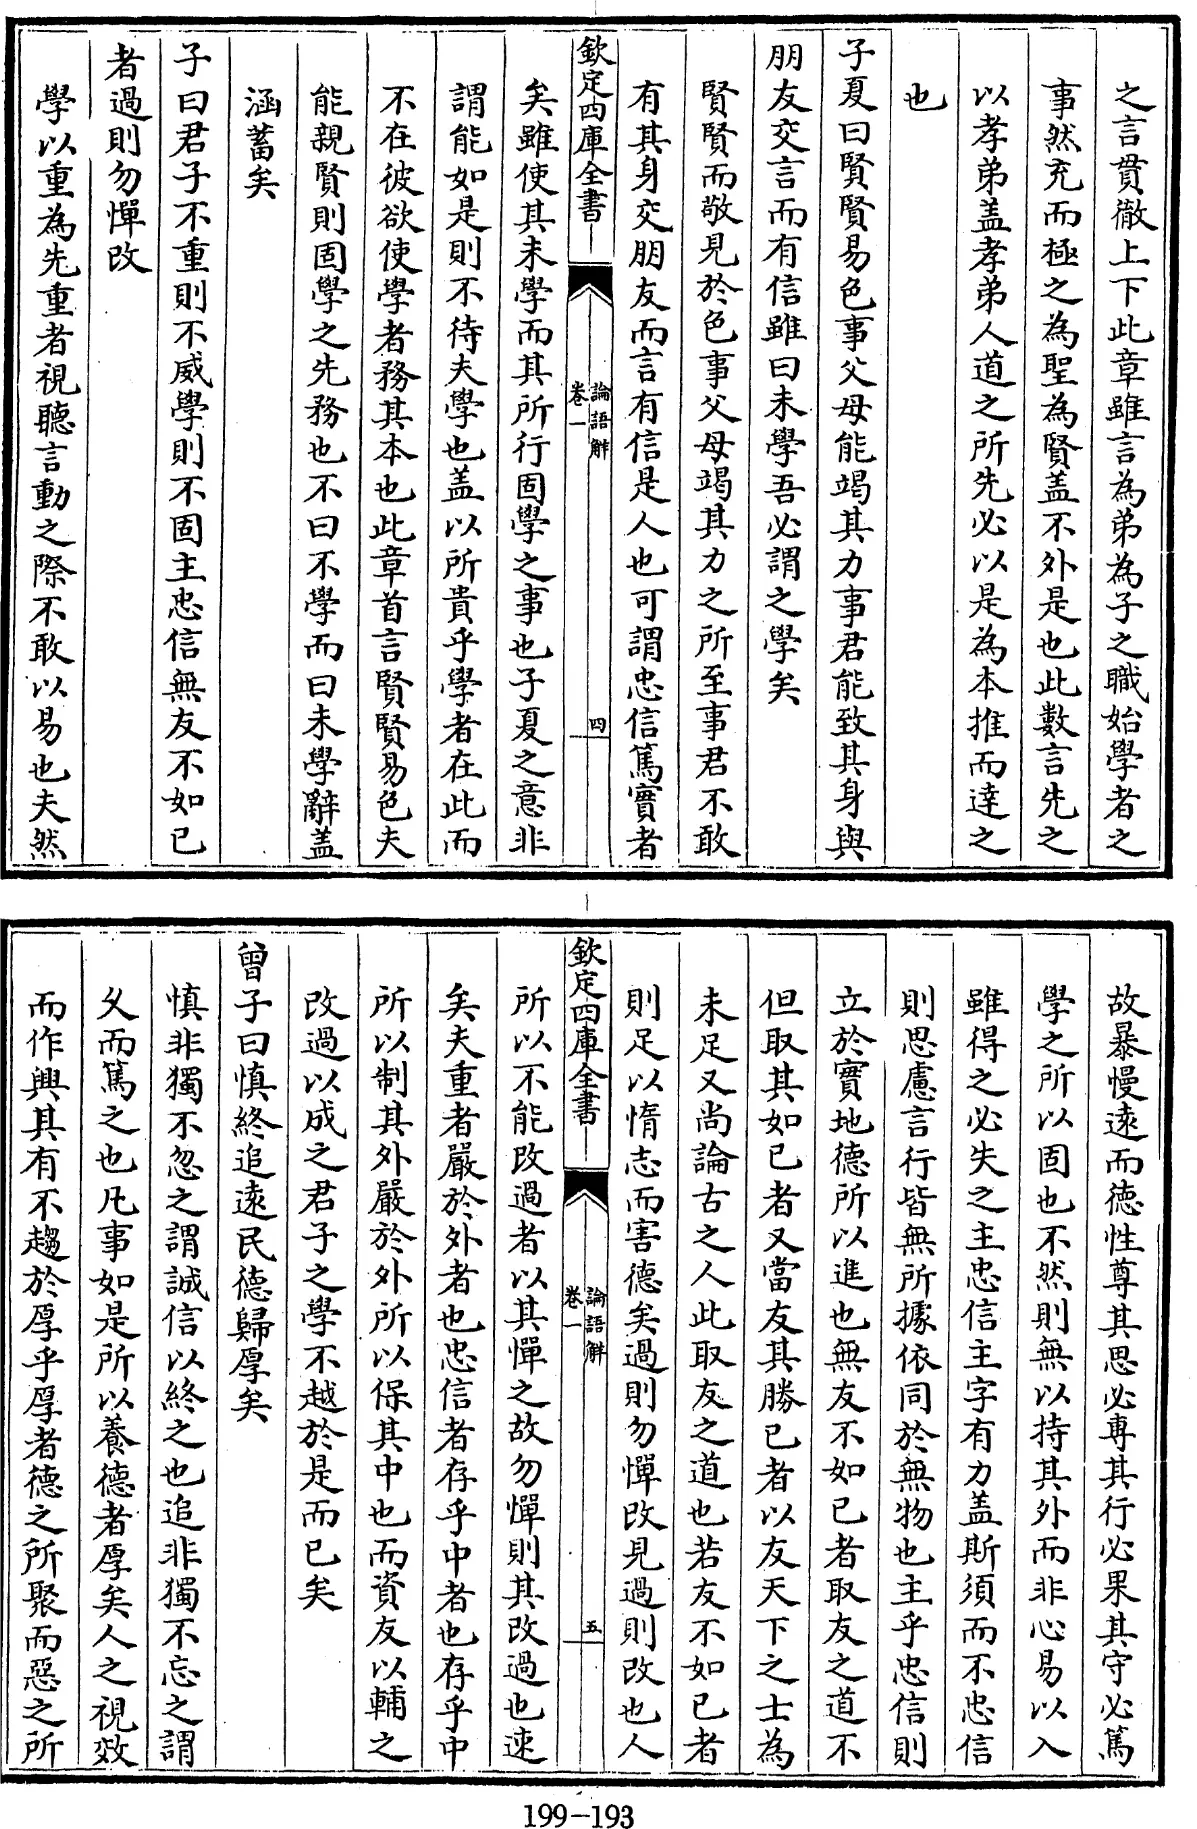 之言貫徹上下此章雖言為弟為子之職始學者之
事然充而極之為聖為賢盖不外是也此數言先之
以孝弟盖孝弟人道之所先必以是為本推而達之
也
子夏曰賢賢易色事父母能竭其力事君能致其身與
朋友交言而有信雖曰未學吾必謂之學矣
賢賢而敬見於色事父母竭其力之所至事君不敢
有其身交朋友而言有信是人也可謂忠信篤實者
欽定四庫全書
論語解
卷一
四
矣雖使其未學而其所行固學之事也子夏之意非
謂能如是則不待夫學也盖以所貴乎學者在此而
不在彼欲使學者務其本也此章首言賢賢易色夫
能親賢則固學之先務也不曰不學而曰未學辭盖
涵蓄矣
子曰君子不重則不威學則不固主忠信無友不如已
者過則勿憚改
學以重為先重者視聽言動之際不敢以易也夫然
故暴慢遠而德性尊其思必專其行必果其守必篤
學之所以固也不然則無以持其外而非心易以入
雖得之必失之主忠信主字有力盖斯須而不忠信
則思慮言行皆無所據依同於無物也主乎忠信則
立於實地德所以進也無友不如已者取友之道不
但取其如已者又當友其勝已者以友天下之士為
未足又尚論古之人此取友之道也若友不如已者
則足以惰志而害德矣過則勿憚改見過則改也人
欽定四庫全書
論語解
卷一
五
所以不能改過者以其憚之故勿憚則其改過也速
矣夫重者嚴於外者也忠信者存乎中者也存乎中
所以制其外嚴於外所以保其中也而資友以輔之
改過以成之君子之學不越於是而已矣
曾子曰慎終追遠民德歸厚矣
慎非獨不忽之謂誠信以終之也追非獨不忘之謂
久而篤之也凡事如是所以養德者厚矣人之視效
而作興其有不趨於厚乎厚者德之所聚而惡之所
199-193